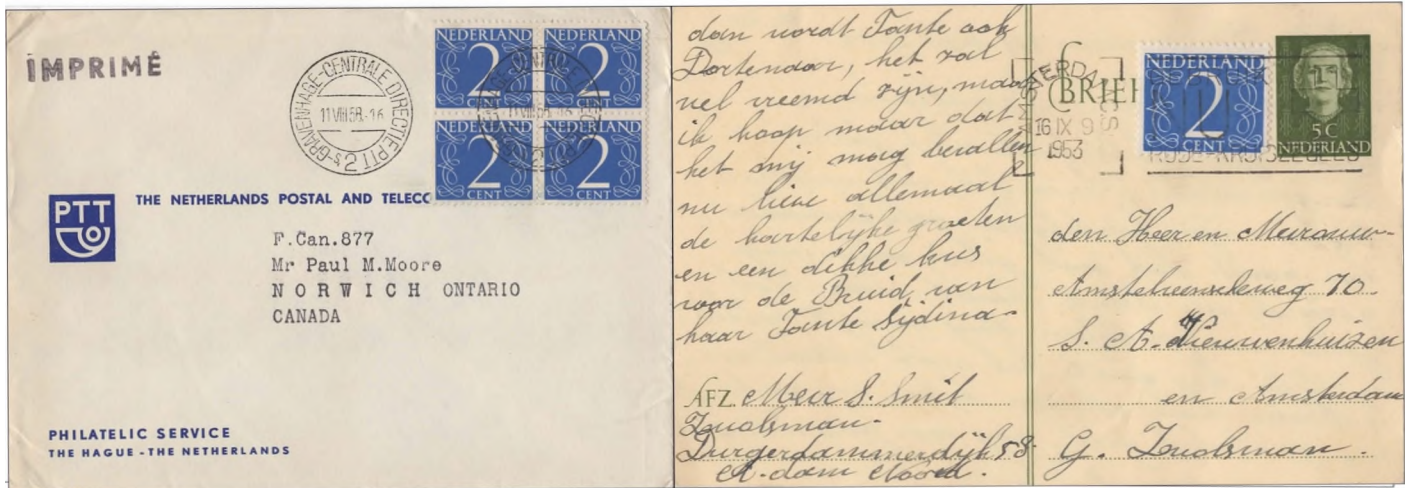 IMPRIMÉ
'S-GRAVENHAGE-CENTRALE DIRECTIE PTT
11 VIII 58.-16
2
NEDERLAND
2
CENT
NEDERLAND
2
CENT
NEDERLAND
2
CENT
NEDERLAND
2
CENT
PTT
THE NETHERLANDS POSTAL AND TELECO
F.Can.877
Mr Paul M.Moore
NORWICH ONTARIO
CANADA
PHILATELIC SERVICE
THE HAGUE - THE NETHERLANDS
dan wordt Tante ook
het zal
wel vreemd zijn, maar
ik hoop maar dat
het mij mag bevallen
nu lieve allemaal
de hartelijke groeten
en een dikke kus
voor de Bruid van
haar Tante Sijdina-
AFZ. Mevr S. Smit
Zwolsman-
Durgerdammerdijk 58-
A-dam Noord.
BRIEF
AMSTERDAM
16 IX 9
1953
NEDERLAND
2
CENT
5 C
NEDERLAND
den Heer en Mevrouw-
Amstelveenscheweg 70-
S. A. Nieuwenhuizen
en Amsterdam
G. Zwolsman.